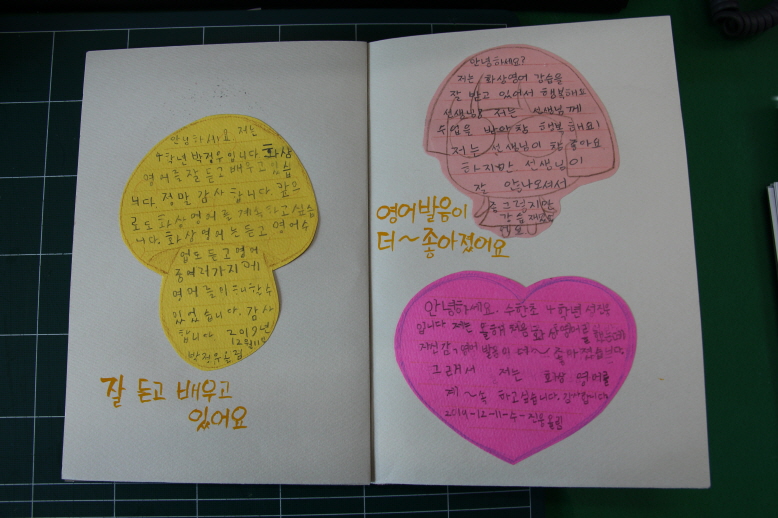 안녕하세요 저는
4학년 박정우입니다 화상
영어를 잘 듣고 배우고 있습
니다. 정말 감사 합니다. 앞으
로도 화상영어를 계속하고싶습
니다. 화상영어는 듣고 영어수
업도 듣고 영어
퀴즈
있었습니다. 감사
합니다 2019년
12월11일
올림
잘 듣고 배우고
있어요
안녕하세요?
저는 화상영어 강습을
잘 받고 있어서 행복해요
선생님! 저는 선생님께
수업을 받아 참 행복해요!
저는 선생님이 참 좋아요
하지만 선생님이
잘 안나오셔서
강습
영어발음이
더~좋아졌어요
안녕하세요. 4학년
입니다 저는 올해 처음 화상영어를
자신감, 영어 발음이 더~ 좋아졌습니다.
그래서 저는 화상 영어를
계~속 하고싶습니다. 감사합니다
2019-12-11-수- 올림